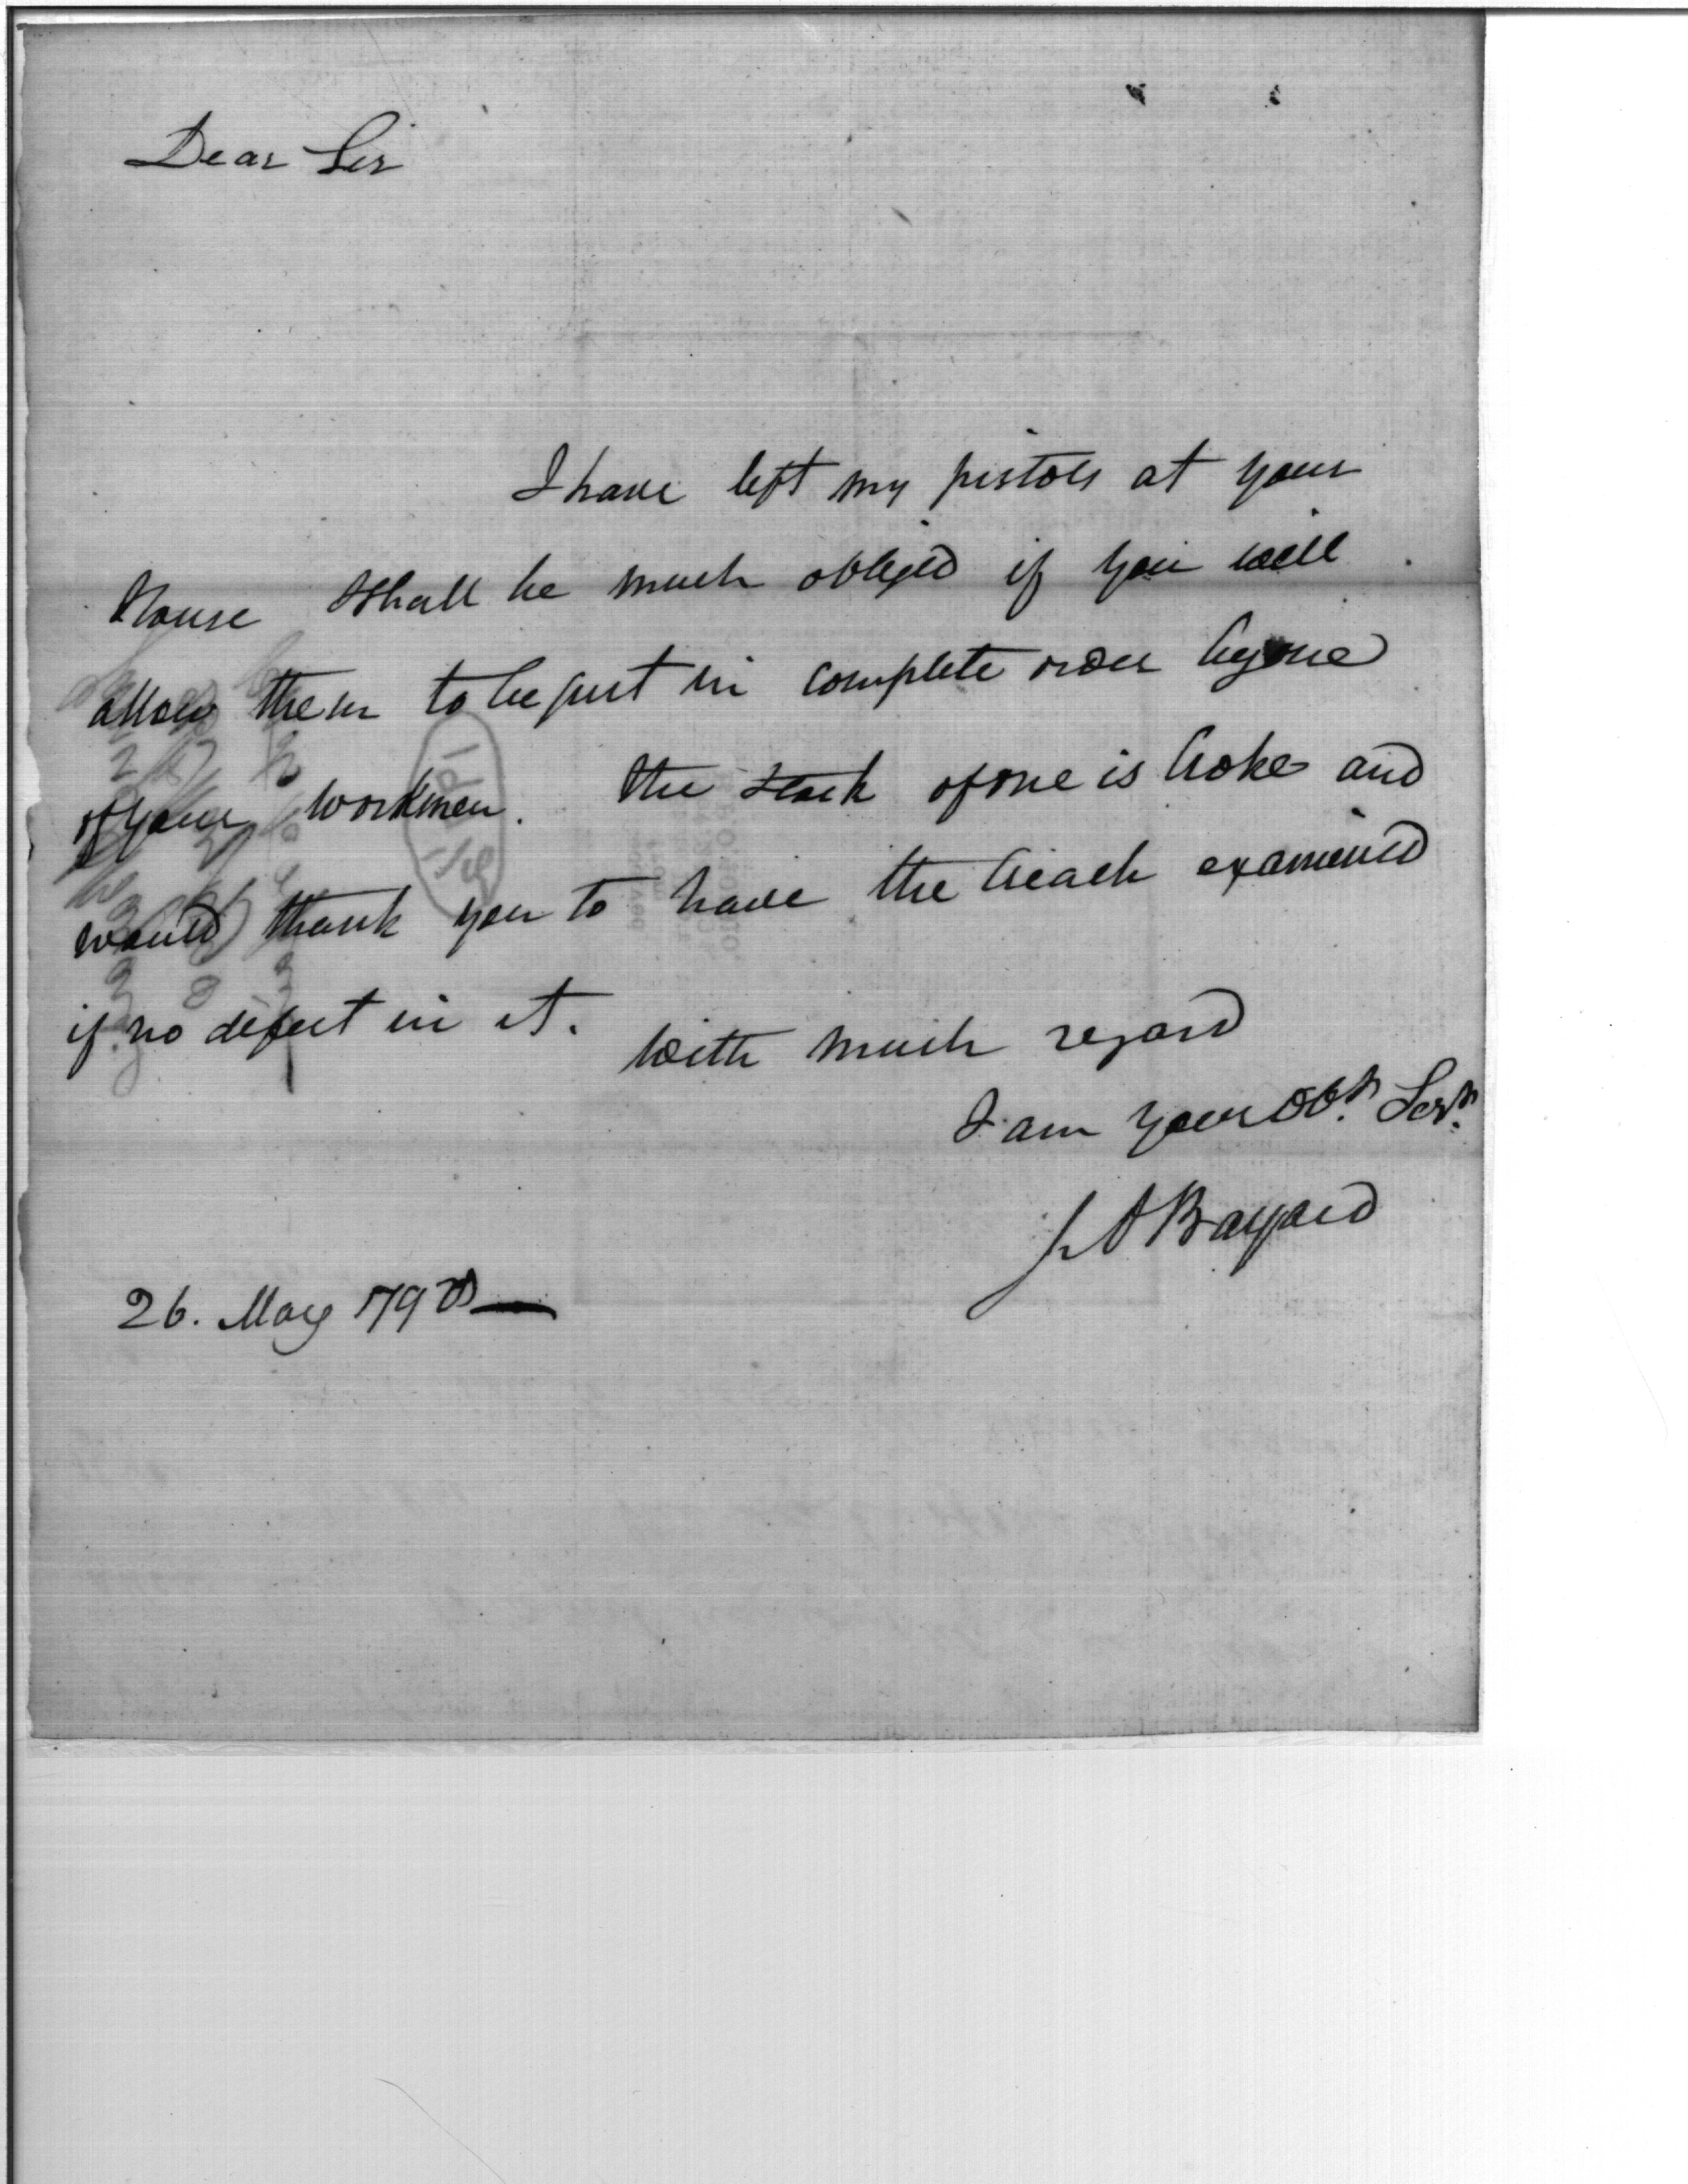 Dear Sir
I have left my pistols at your
House & shall be much obliged if you will
allow them to be put in complete order by one
of your workmen. The stock of one is broke and
would thank you to have the breach examined
if no defect in it.
With much regard
I am your Obt. Servt.
J A Bayard
26. May 179